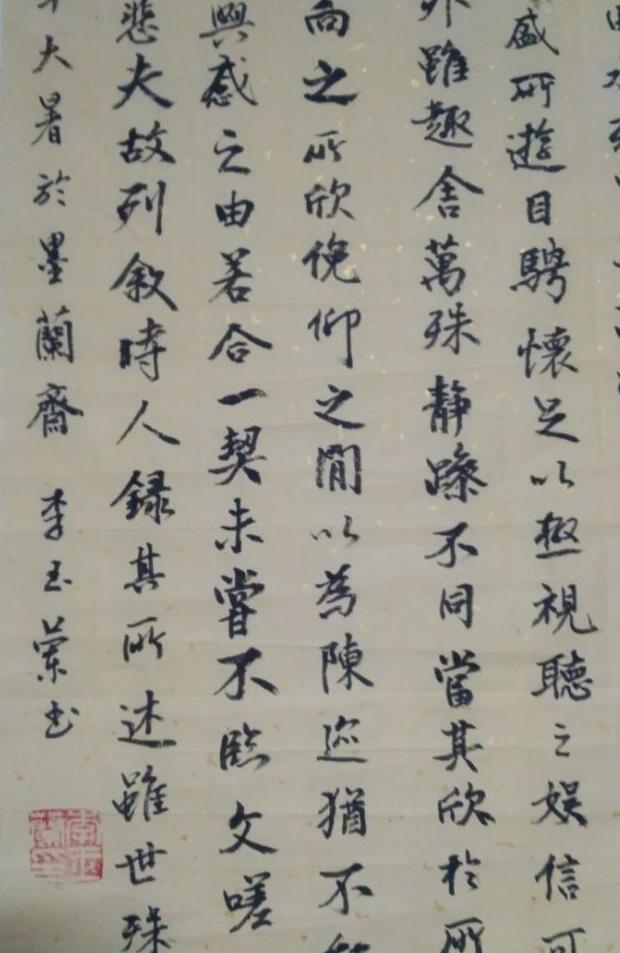 盛所遊目騁懷足以極視聽之娛信可
外雖趣舍萬殊靜躁不同當其欣於所
向之所欣俛仰之間以為陳迹猶不
興感之由若合一契未嘗不臨文嗟
悲夫故列敘時人錄其所述雖世殊
大暑於墨蘭齋 李玉蘭书